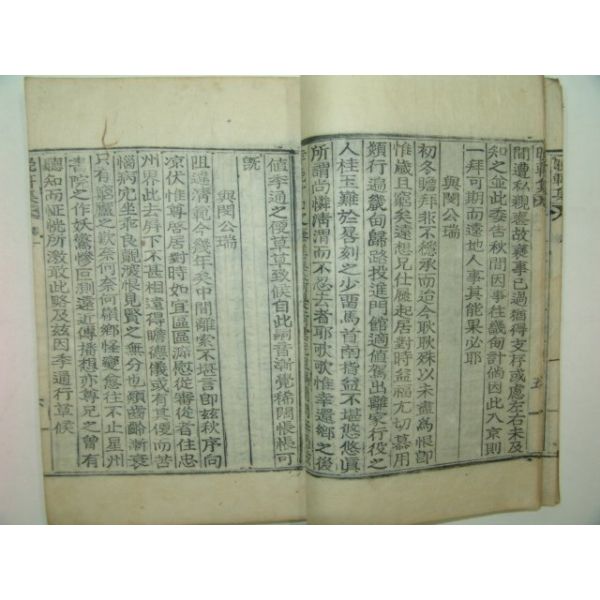 間遭私觀喪故襄事已過猶得支存或慮左右未及
知之並此委告秋間因事往畿甸計倘因此入京則
一拜可期而遠地人事其能果必耶
與閔公瑞
初冬贈拜非不穩承而迨今耿耿殊以未盡爲恨卽
惟歲且窮矣遠想兄仕履起居對時益福尤切慕用
類行遍畿甸歸路投進門館適値駕出離家行役之
人桂玉難於晷刻之少留馬首南指益不堪悠悠眞
所謂尚憐淸渭而不忍去者耶歌歌惟幸還鄉之後
値李通之便草草致候自此嗣音漸覺稀闊悵悵可
旣
與閔公瑞
阻違淸範今幾年矣中間離索不堪言卽玆秋序向
凉伏惟尊啓居對時如宜區區溸慰從審從者住忠
州界此去屛下不甚相遠得瞻德儀或有其便而苦
惱病冗坐乖良覿深恨見賢之無分也類齒漸衰
只有窮廬之歎奈何奈何嶺鄉怪變愈往不止星州
書院之作妖驚慘叵測遠近傳播想亦尊兄之曾有
聽知而怔恍所激敢此略及玆因李通行草候